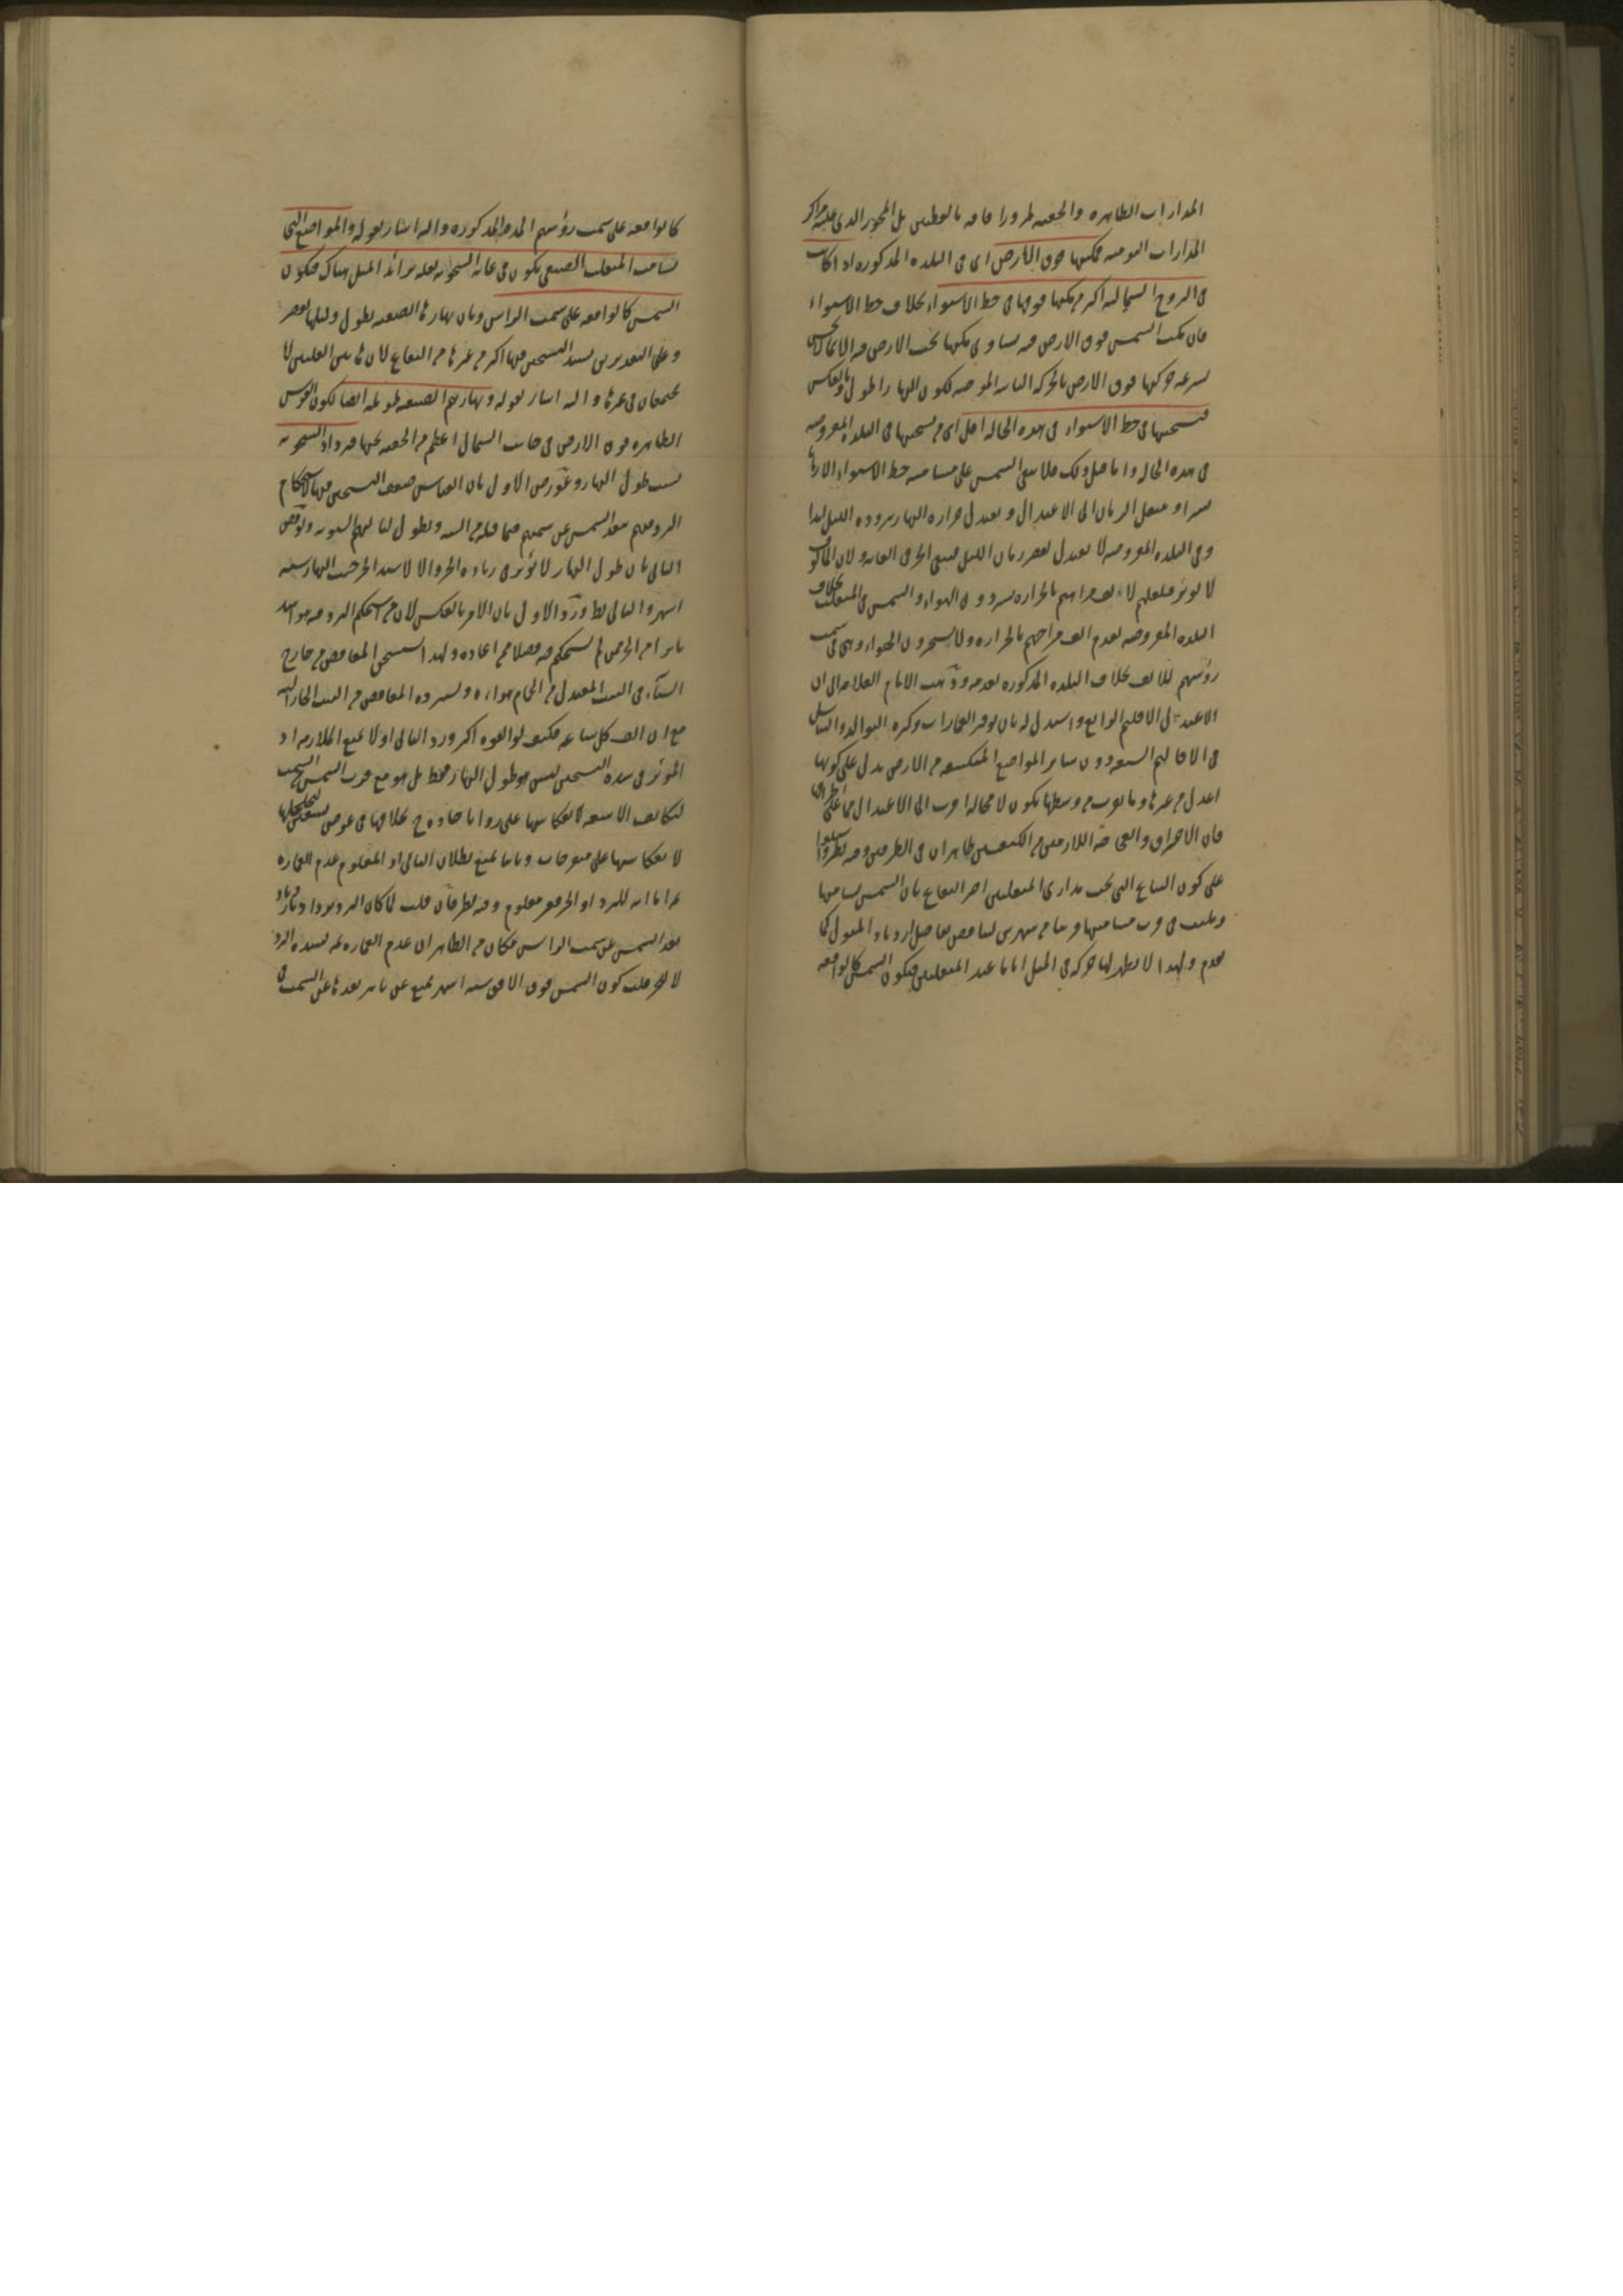 المدارات الظاهره والخفيه لمرورا فاقه بالقطبين بل المحور الذى عليه مراكز
المدارات اليوميه فمكثها فوق الارض اى فى البلده المذكوره اذا كانت
فى البروج الشماليه اكثر من مكثها فوقها فى خط الاستواء بخلاف خط الاستواء
فان مكث الشمس فوق الارض فيه يساوى مكثها تحت الارض فيه الا بما لا يحس
لسرعه حركتها فوق الارض بالحركه الثانيه الموجبه لكون النهار اطول وبالعكس
فتسخينها فى خط الاستواء فى هذه الحاله اقل اى من تسخينها فى البلده المفروضه
فى هذه الحاله وانما قيل ذلك فلا تبقى الشمس على مسامته خط الاستواء الا زمانا
يسيرا وينتقل الزمان الى الاعتدال ويعتدل حراره النهار ببروده الليل لذا
وفى البلده المفروضه لا يعتدل لقصر زمان الليل فيبقى الحر فى الغايه ولان المألوف
لا يؤثر فلعلهم لالف مزاجهم بالحراره يبردون الهواء والشمس فى المنقلب بخلاف
البلده المفروضه لعدم الف مزاجهم بالحراره ولا يسخرون الهواء وهى فى سمت
رؤسهم للالف بخلاف البلده المذكوره لعدمه وذهب الامام العلامه الى ان
الاعتدال فى الاقليم الرابع واستدل له بان توفر العمارات وكثره التوالد والتناسل
فى الاقاليم السبعه دون سائر المواضع المنكشفه من الارض يدل على كونها
اعدل من غيرها وما يقرب من وسطها يكون لا محاله اقرب الى الاعتدال مما على اطرافها
فان الاحتراق والفجاجه اللازمين من الكيفيتين ظاهران فى الطرفين وفيه نظر
على كون البقاع التى تحت مدارى المنقلبين احر البقاع بان الشمس تسامتها
وتلبث فى قرب مسامتتها قريبا من شهرين لتناقص تفاضل ازدياد الميول كما
تقدم ولهذا لا يظهر لها حركه فى الميل اياما عند المنقلبين فيكون الشمس كالواقفه
كالواقفه على سمت رؤسهم المده المذكوره واليه اشار بقوله والمواضع التى
تسامت المنقلب الصيفى يكون فى غايه السخونه لقله تزايد الميل هناك فيكون
الشمس كالواقفه على سمت الراس وبان نهارها الصيفيه يطول وليلها يقصر
وعلى التقديرين يشتد التسخين فيها اكثر من غيرها من البقاع لان هاتين العلتين لا
يجتمعان فى غيرها واليه اشار بقوله ونهارهم الصيفيه طويله ايضا لكون القوس
الظاهره فوق الارض فى جانب الشمالى اعظم من الخفيه تحتها فيزداد السخونه
بسبب طول النهار وعورض الاول بان القياس ضعف التسخين فيها لاستحكام
البرد فيهم لبعد الشمس عن سمتهم فيما قبله من السنه ولطول لياليهم الشتويه ونوقض
الثانى بان طول النهار لا يؤثر فى زياده الحر والا لاشتد الحر حيث النهار سته
اشهر والتالى بط ورد الاول بان الامر بالعكس لان من استحكم البرد فيه هو اشد
تاثرا من الحر ممن لم يستحكم فيه فضلا عمن اعتاده ولهذا يستسخن المغافص من خارج
الشتاء فى البيت المعتدل من الحمام هواءه ويستبرده المغافص من البيت الحار اليه
مع ان الف كل ساعه فكيف لو الفوه اكثر ورد الثانى اولا بمنع الملازمه اذ
المؤثر فى شده التسخين ليس هو طول النهار فقط بل هو مع قرب الشمس من السمت
لتكاثف الاشعه لانعكاسها على زوايا حاده ح بخلافها فى عرض تسعين لتخلخلها
لانعكاسها على منفرجات وثانيا بمنع بطلان التالى اذ المعلوم عدم العماره
ثم اما انه للبرد او الحر فغير معلوم وفيه نظر فان قلت لما كان البرد يزداد بازدياد
بعد الشمس عن سمت الراس فكان من الظاهر ان عدم العماره ثم لشده البرد
لا للحر قلت كون الشمس فوق الافق سته اشهر يمنع عن تاثير بعدها عن السمت فى